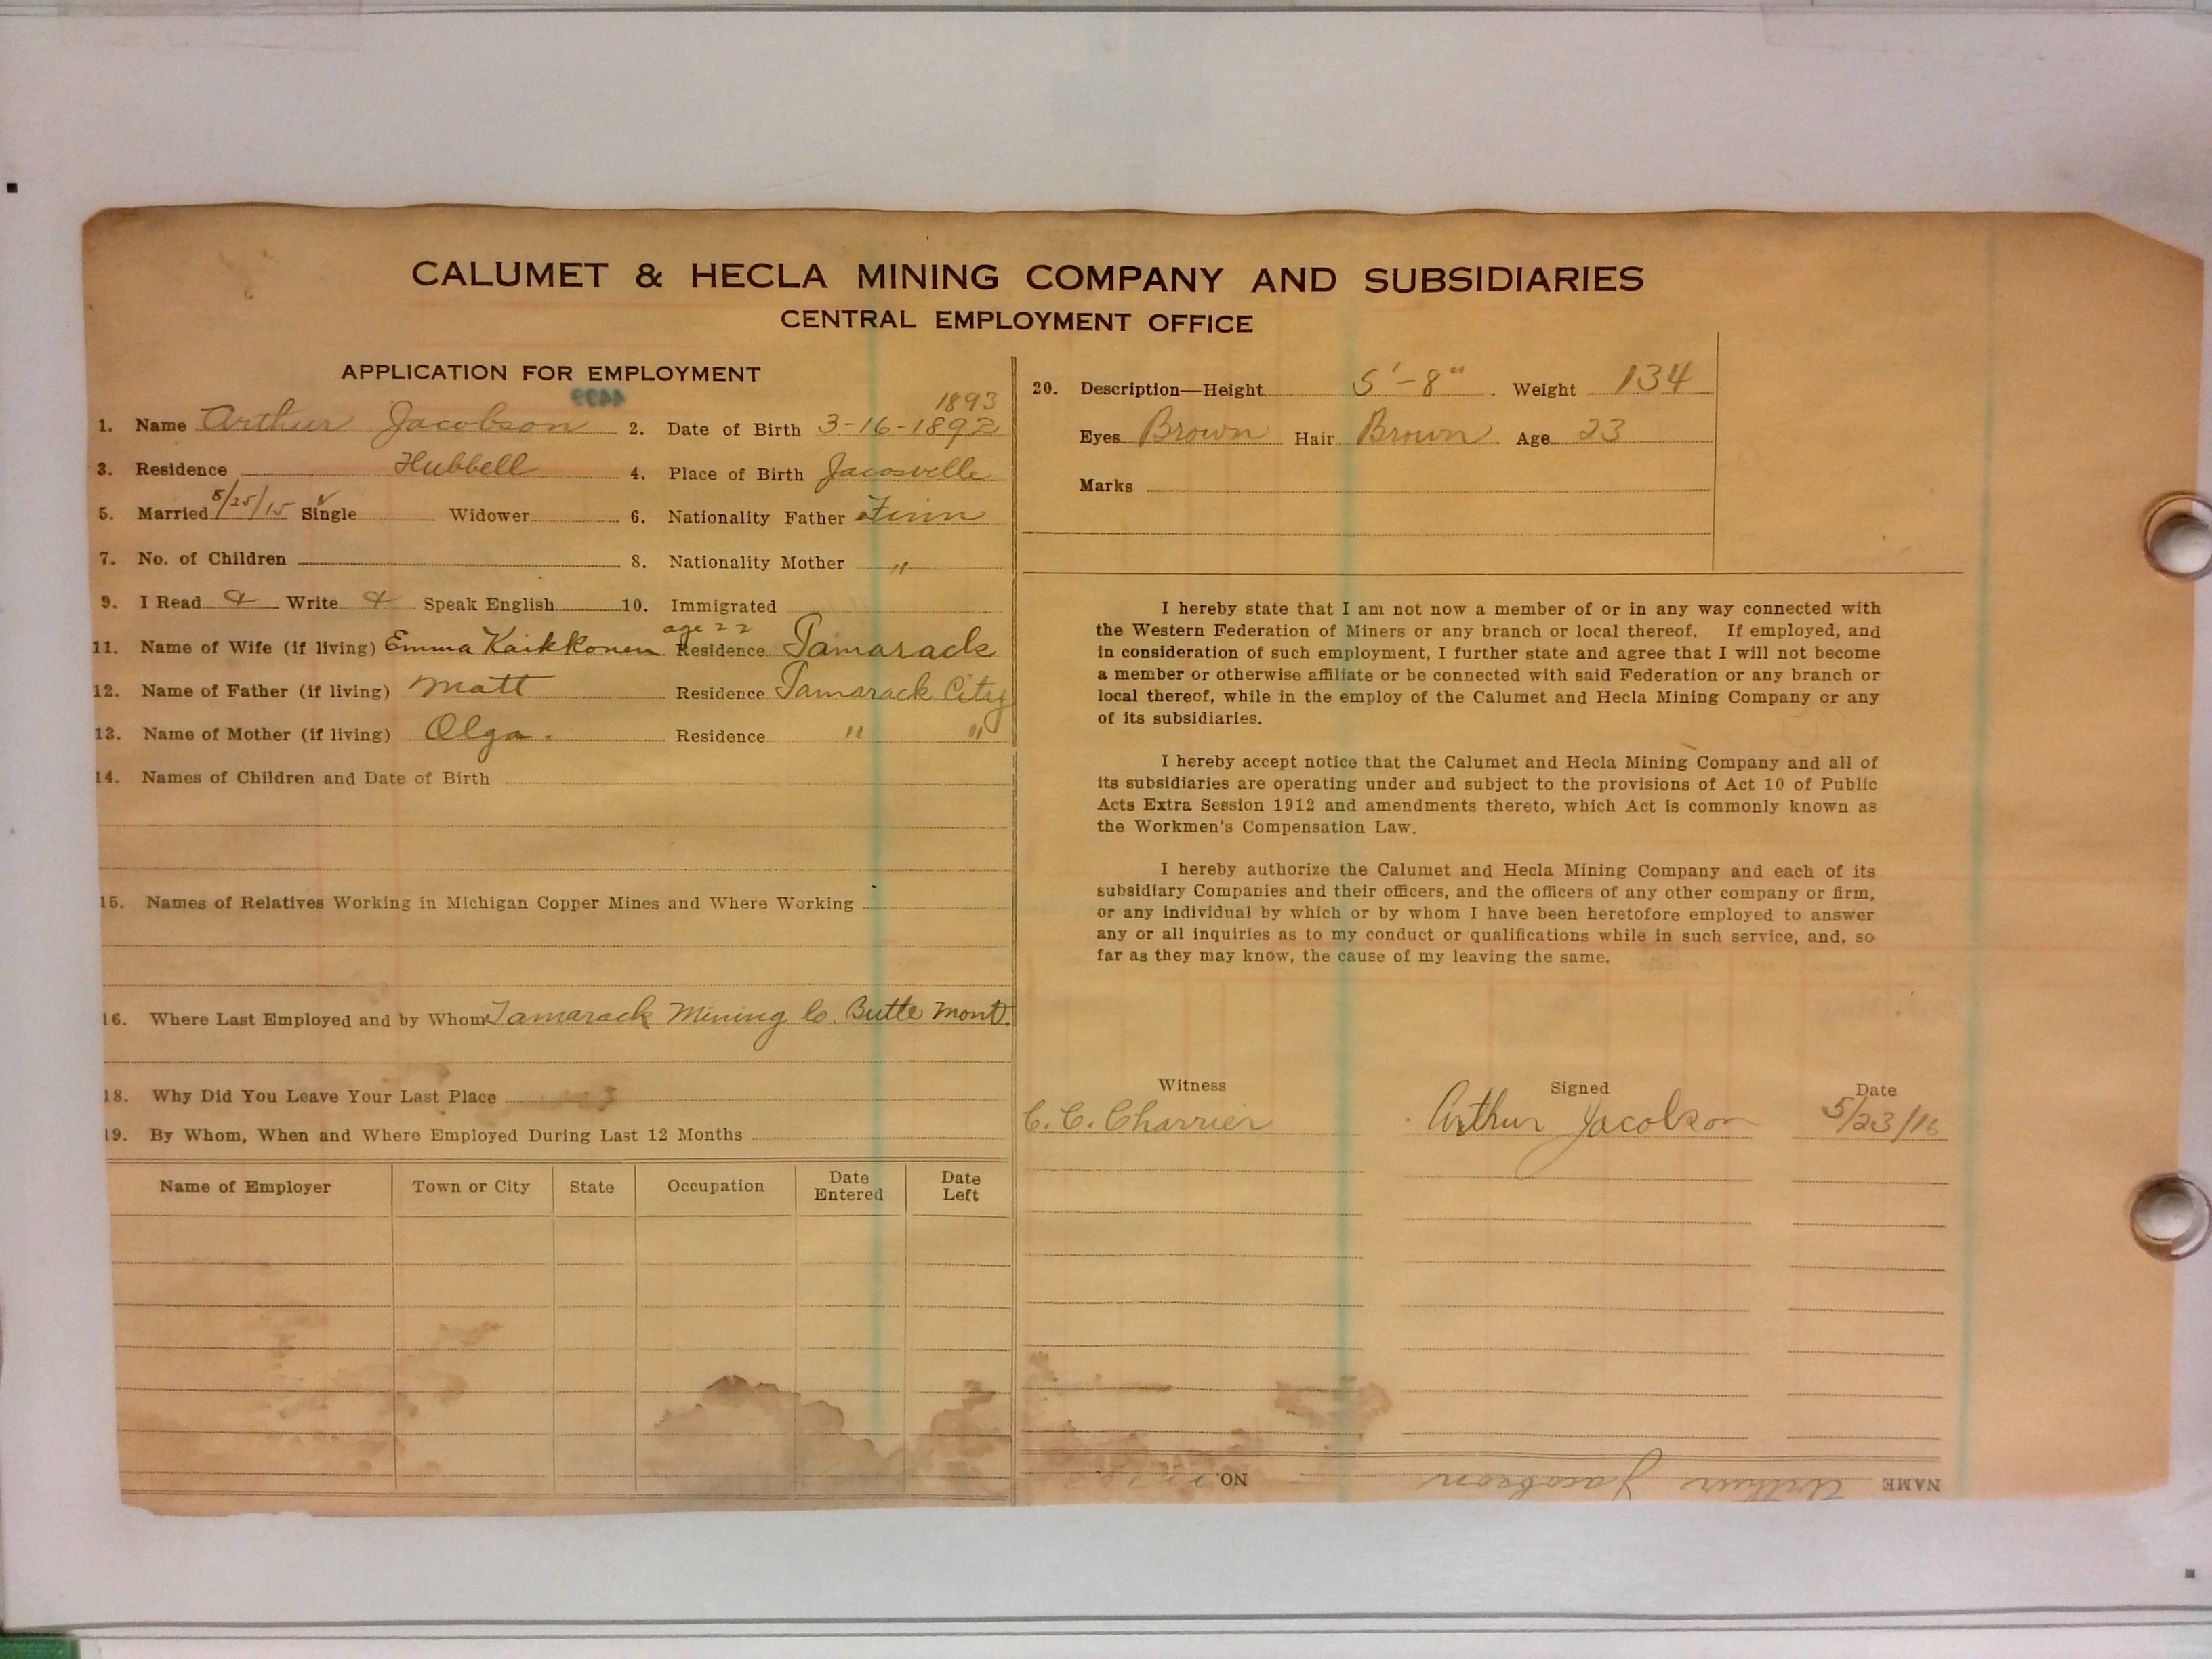 CALUMET & HECLA MINING COMPANY AND SUBSIDIARIES
CENTRAL EMPLOYMENT OFFICE
APPLICATION FOR EMPLOYMENT
1893
1. Name Arthur Jacobson 2. Date of Birth 3-16-1892
3. Residence Hubbell 4. Place of Birth Jacosville
5. Married 8/25/15 Single Widower 6. Nationality Father Finn
7. No. of Children 8. Nationality Mother "
9. I Read & Write & Speak English 10. Immigrated
age 22
11. Name of Wife (if living) Emma Kaikkonen Residence Tamarack
12. Name of Father (if living) Matt Residence Tamarack City
13. Name of Mother (if living) Olga. Residence " "
14. Names of Children and Date of Birth
15. Names of Relatives Working in Michigan Copper Mines and Where Working
16. Where Last Employed and by Whom Tamarack Mining Co. Butte Mont.
18. Why Did You Leave Your Last Place
19. By Whom, When and Where Employed During Last 12 Months
Name of Employer Town or City State Occupation Date Entered Date Left
20. Description—Height 5'-8" Weight 134
Eyes Brown Hair Brown Age 23
Marks
I hereby state that I am not now a member of or in any way connected with
the Western Federation of Miners or any branch or local thereof. If employed, and
in consideration of such employment, I further state and agree that I will not become
a member or otherwise affiliate or be connected with said Federation or any branch or
local thereof, while in the employ of the Calumet and Hecla Mining Company or any
of its subsidiaries.
I hereby accept notice that the Calumet and Hecla Mining Company and all of
its subsidiaries are operating under and subject to the provisions of Act 10 of Public
Acts Extra Session 1912 and amendments thereto, which Act is commonly known as
the Workmen's Compensation Law.
I hereby authorize the Calumet and Hecla Mining Company and each of its
subsidiary Companies and their officers, and the officers of any other company or firm,
or any individual by which or by whom I have been heretofore employed to answer
any or all inquiries as to my conduct or qualifications while in such service, and, so
far as they may know, the cause of my leaving the same.
Witness Signed Date
C. C. Charrier Arthur Jacobson 5/23/16
NAME Arthur Jacobson NO.